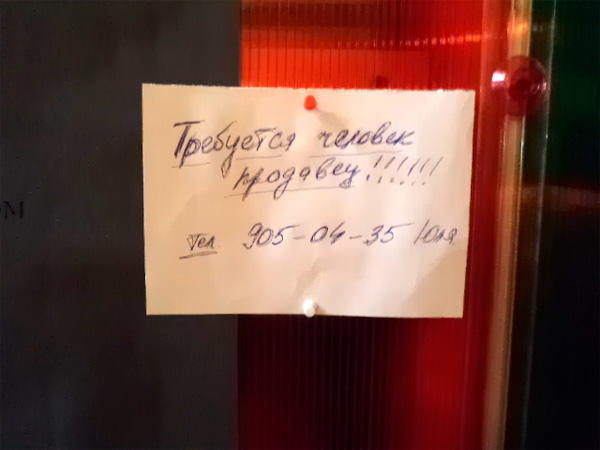 Требуется человек
продавец!!!!!!
тел. 905-04-35 Юля
ом